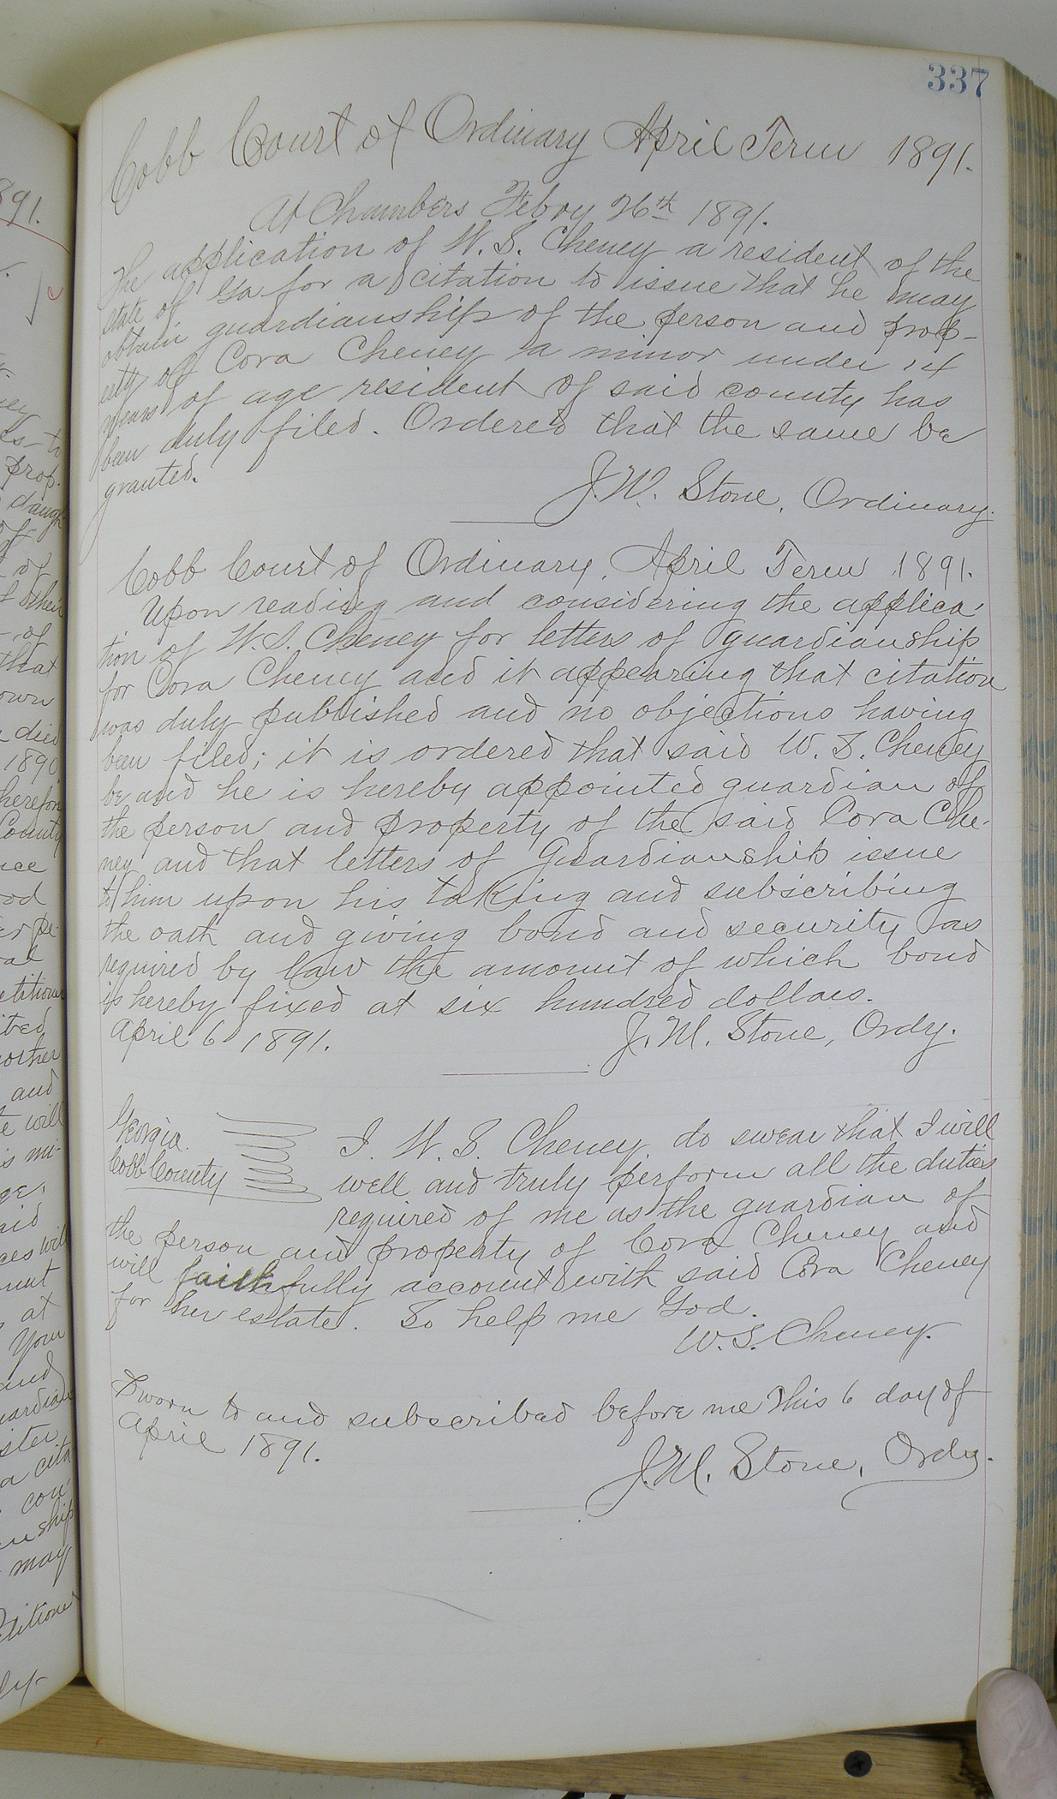 337
Cobb Court of Ordinary April Term 1891.
At Chambers Febry 26th 1891.
The application of W. S. Cheney a resident of the
state of Ga for a citation to issue that he may
obtain guardianship of the person and prop-
erty of Cora Cheney a minor under 14
years of age resident of said county has
been duly filed. Ordered that the same be
granted.
J. W. Stone, Ordinary.
Cobb Court of Ordinary, April Term 1891.
Upon reading and considering the applica-
tion of W. S. Cheney for letters of guardianship
for Cora Cheney and it appearing that citation
was duly published and no objections having
been filed; it is ordered that said W. S. Cheney
be and he is hereby appointed guardian of
the person and property of the said Cora Che-
ney and that letters of Guardianship issue
to him upon his taking and subscribing
the oath and giving bond and security as
required by law the amount of which bond
is hereby fixed at six hundred dollars.
April 6 1891.
J. M. Stone, Ordy.
Georgia
Cobb County
I. W. S. Cheney, do swear that I will
well and truly perform all the duties
required of me as the guardian of
the person and property of Cora Cheney and
will faithfully account with said Cora Cheney
for her estate. So help me God.
W. S. Cheney.
Sworn to and subscribed before me this 6 day of
April 1891.
J. M. Stone, Ordy.
891.
prop.
daugh
of
of
their
of
that
own
died
1890
County
and
will
mi-
at
Your
and
a cita
may